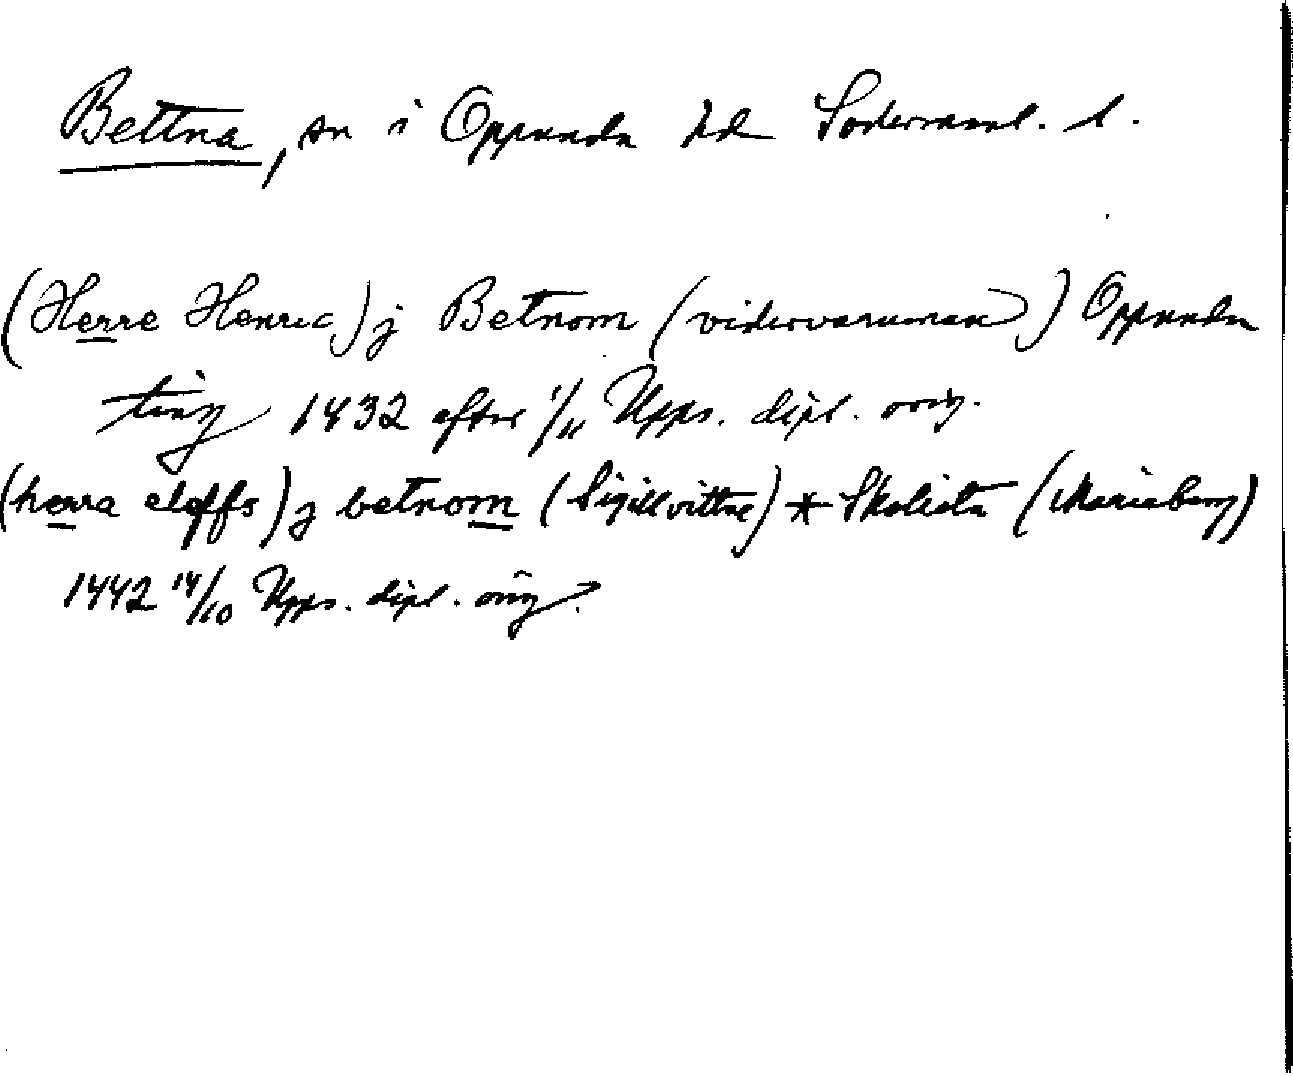 Bettna, sn i Oppunda hd Södermanl. l.
(Herre Henric) j Betnom (vidervaruman) Oppunda
ting 1432 efter 1/11 Upps. dipl. orig.
(herra eleffs) j betnom (Sigillvittne) * Skolista (Mariaberg)
1442 14/10 Upps. dipl. orig.